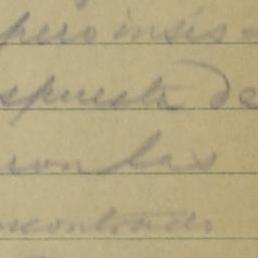 pero insis-
spuesta de
con las
ncontrado